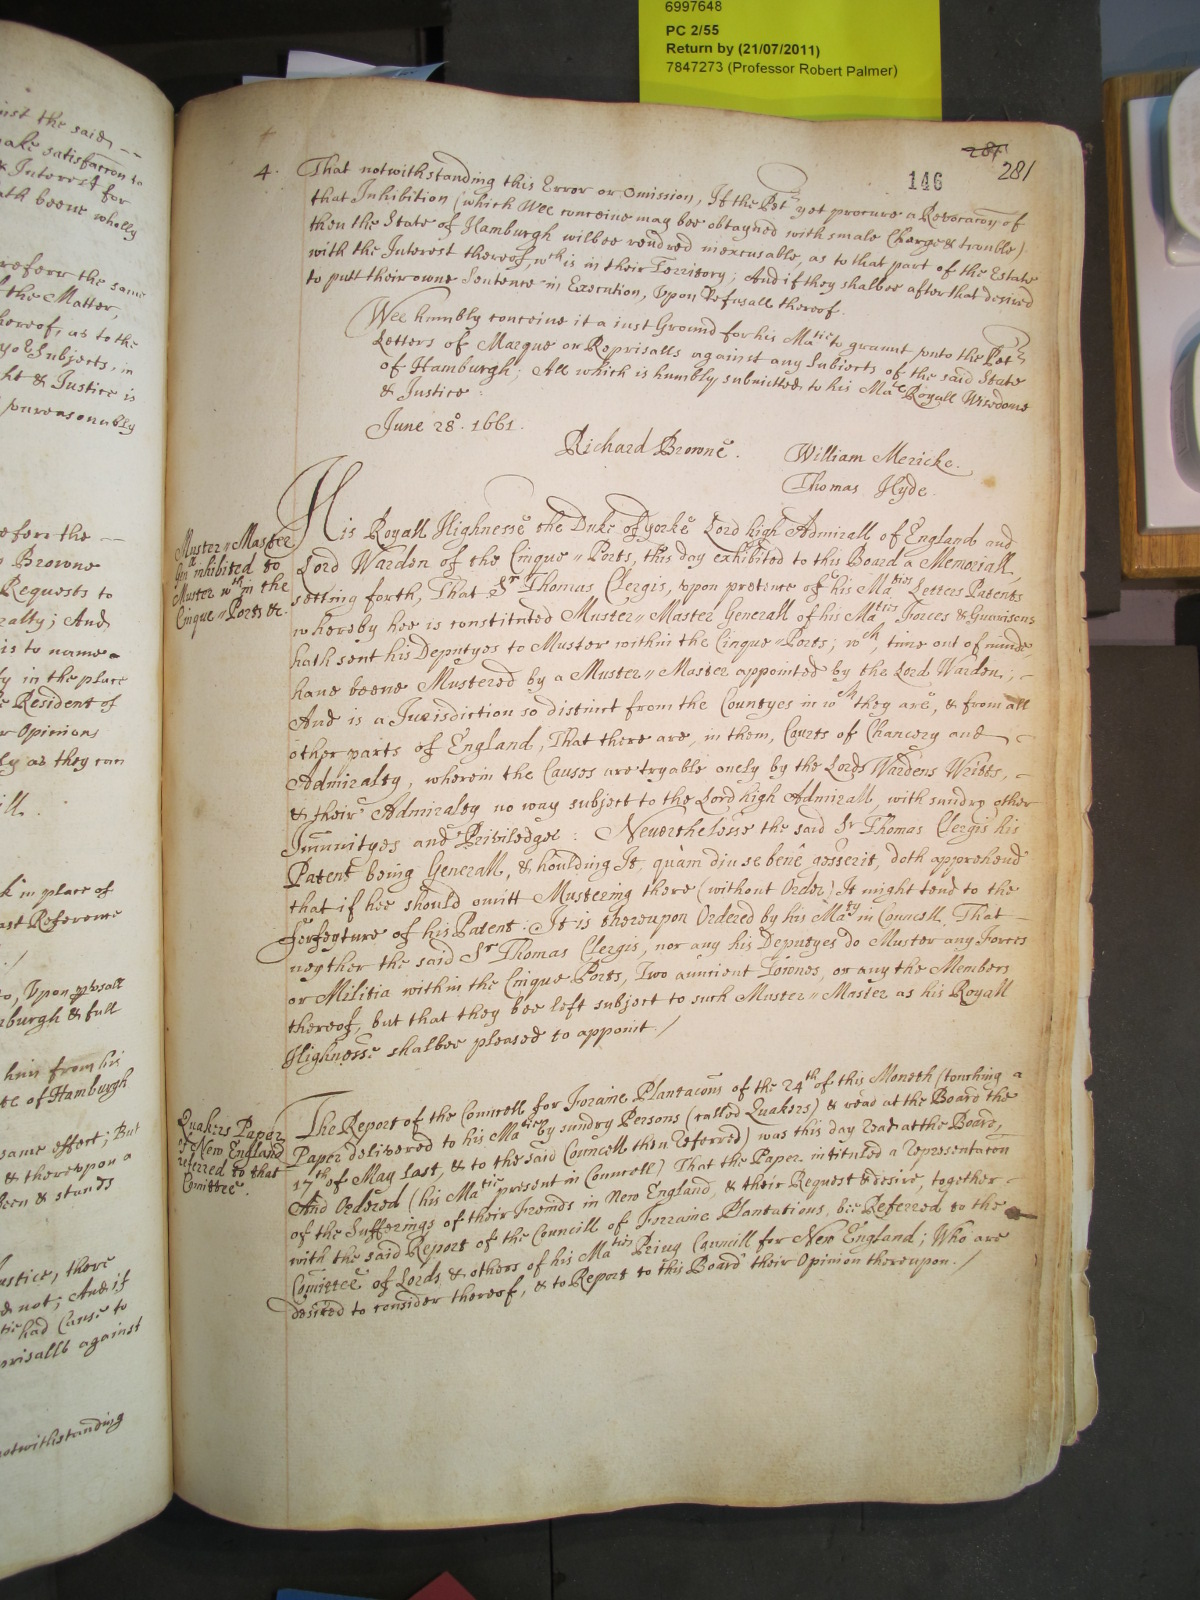 6997648
PC 2/55
Return by (21/07/2011)
7847273 (Professor Robert Palmer)
inst the said
make satisfaccon to
& Interest for
ath beene wholly
referr the same
the Matter,
hereof, as to the
yor Subjects, in
ht & Justice is
vnreasonably
efore the
Browne
Requests to
ralty; And
is to name
y in the place
e Resident of
r Opinions
ly as they can
k in place of
ast Reference
to, Vpon
mburgh & full
him from his
te of Hamburgh
same effort; But
& therevpon a
been & stands
ustice, there
& not; And if
had Cause to
prisalls against
notwithstanding
281
146
281
4. That notwithstanding this Error or Omission, If the Petr yet procure a Revocacon of
that Inhibition (which Wee conceive may bee obtayned with smale Charge & trouble)
then the State of Hamburgh wilbee rendred inexcusable, as to that part of the Estate
with the Interest thereof, wch is in their Territory; And if they shalbee after that desired
to putt their owne Sentence in Execution, Vpon Refusall thereof.
Wee humbly conceive it a iust Ground for his Matie to graunt vnto the Petr
Letters of Marque or Reprisalls against any Subjects of the said State
of Hamburgh; All which is humbly submitted to his Mates Royall Wisedome
& Justice:
June 28o. 1661.
Richard Browne. William Mericke.
Thomas Hyde.
Muster=Master
Gen inhibited to
Muster wth in the
Cinque=Ports &c.
His Royall Highnesse the Duke of yorke Lord high Admirall of England and
Lord Warden of the Cinque=Ports, this day exhibited to this Board a Memoriall,
setting forth, That Sr Thomas Clergis, vpon pretence of his Maties Letters Patents
whereby hee is constituted Muster=Master Generall of his Maties Forces & Guarisons
hath sent his Deputyes to Muster within the Cinque=Ports; wch, time out of minde
haue beene Mustered by a Muster=Master appointed by the Lord Warden;
And is a Jurisdiction so distinct from the Countyes in wch they are, & from all
other parts of England, That there are, in them, Courts of Chancery and
Admiralty, wherein the Causes are tryable onely by the Lords Wardens Writts,
& their Admiralty no way subject to the Lord high Admirall, with sundry other
Immunityes and Priviledges: Neverthelesse the said Sr Thomas Clergis his
Patent being Generall, & houlding It, quam diu se bene gesserit, doth apprehend
that if hee should omitt Mustering there (without Order) It might tend to the
forfeyture of his Patent: It is therevpon Ordered by his Maty in Councell, That
neyther the said Sr Thomas Clergis, nor any his Deputyes do Muster any Forces
or Militia within the Cinque Ports, Two auncient Townes, or any the Members
thereof, but that they bee left subject to such Muster=Master as his Royall
Highnesse shalbee pleased to appoint./
Quakers Paper
of New England
referred to that
Comittee.
The Report of the Councell for Foraine Plantacons of the 24th of this Moneth (touching a
Paper delivered to his Matie by sundry Persons (called Quakers) & read at the Board the
17th of May last, & to the said Councell then Referred) was this day read at the Board,
And Ordered (his Matie present in Councell) That the Paper intituled a Representacon
of the Sufferings of their Freinds in New England, & their Request & desire, together
with the said Report of the Councill of Forraine Plantations, bee Referred to the
Comittee of Lords & others of his Maties Privy Councill for New England; Who are
desired to consider thereof, & to Report to this Board their Opinion therevpon./